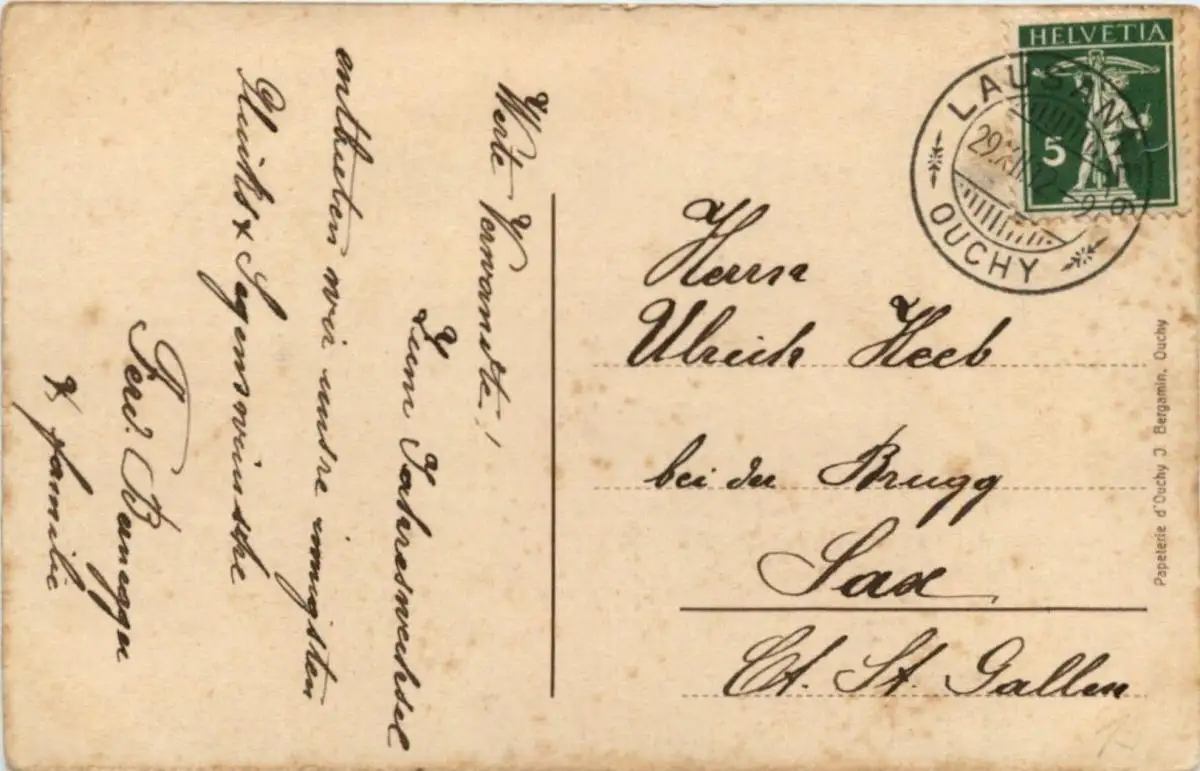 Werte Verwandte!
Zum Jahreswechsel
entbieten wir unsre innigsten
Glücks & Segenswünsche
Ferd.
& Familie
HELVETIA
5
LAUSANNE
29.XII.12
OUCHY
Herrn
Ulrich Heeb
bei der Brugg
Sax
Ct. St. Gallen
Papeterie d'Ouchy J Bergamin, Ouchy